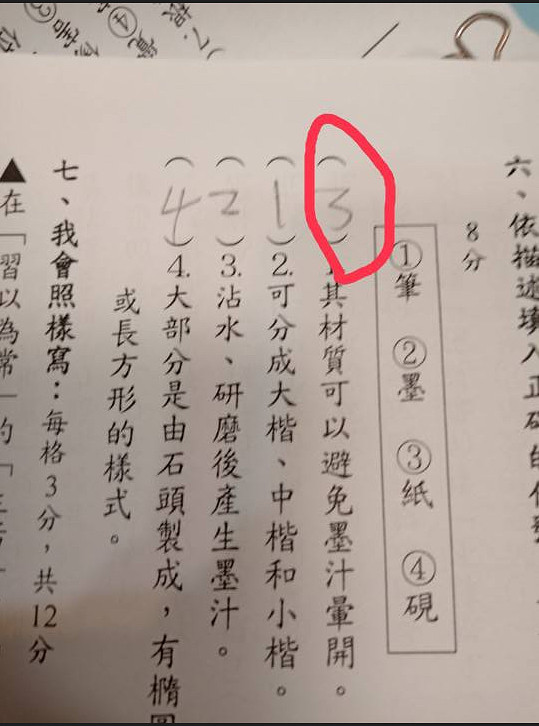 六、依描述填入正確的代號
8分
①筆 ②墨 ③紙 ④硯
(3)1.其材質可以避免墨汁暈開。
(1)2.可分成大楷、中楷和小楷。
(2)3.沾水、研磨後產生墨汁。
(4)4.大部分是由石頭製成，有橢圓
或長方形的樣式。
七、我會照樣寫：每格3分，共12分
▲在「習以為常」的「